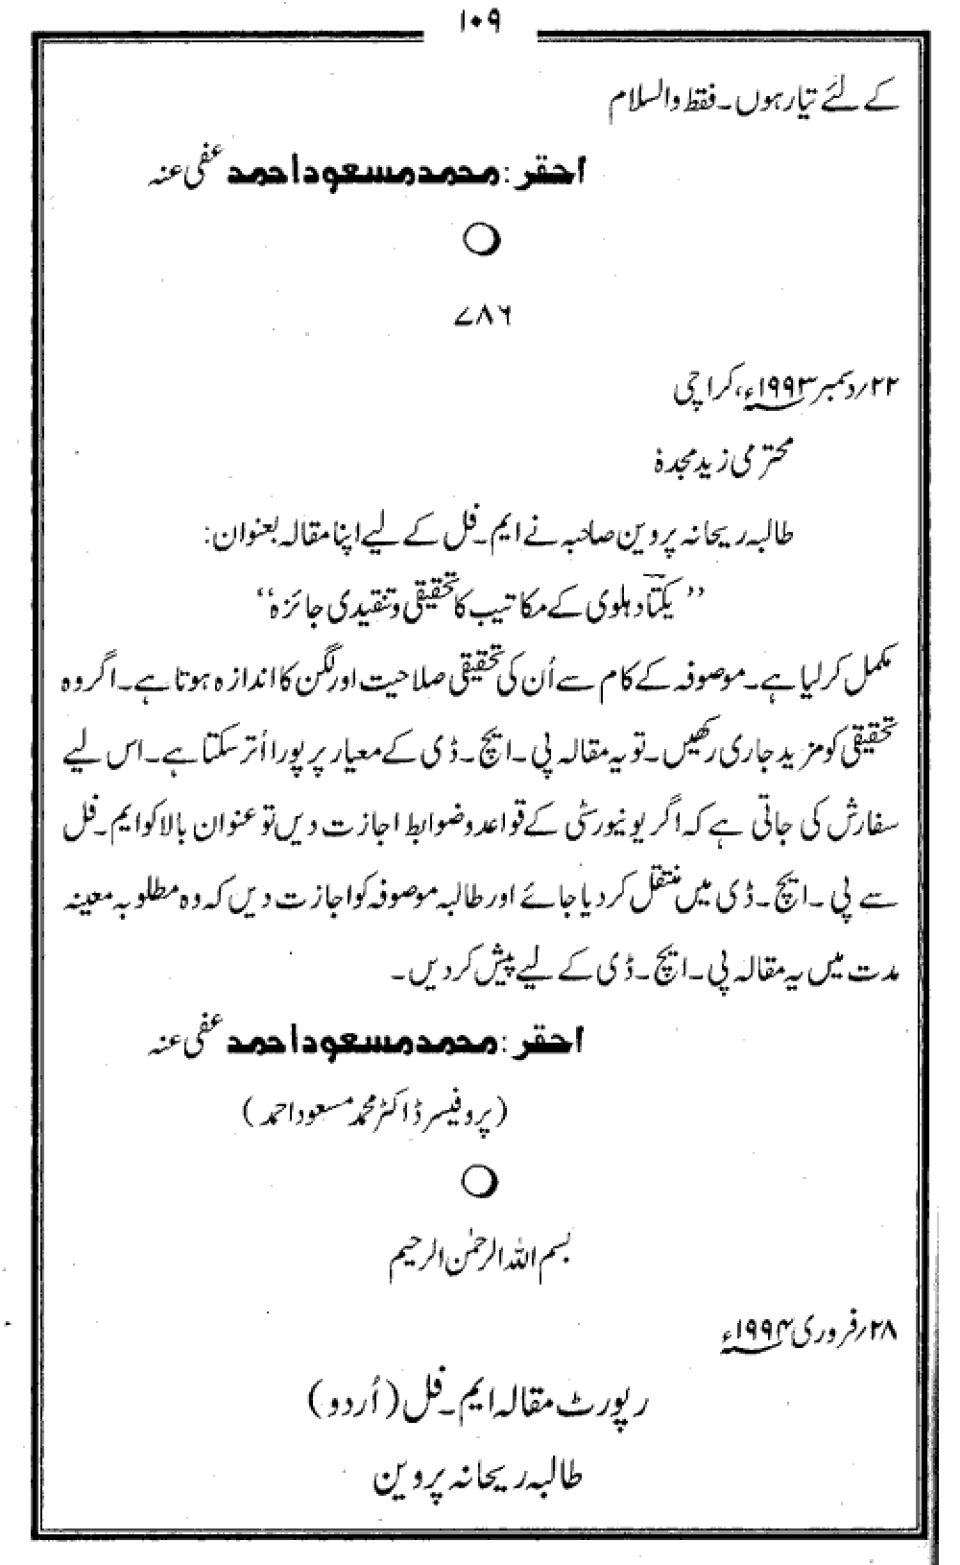 ۱۰۹
کے لئے تیار ہوں۔ فقط والسلام
احقر: محمد مسعود احمد عفی عنہ
۷۸۶
۲۲؍دسمبر ۱۹۹۳ء، کراچی
محترمی زید مجدہٗ
طالبہ ریحانہ پروین صاحبہ نے ایم۔فل کے لیے اپنا مقالہ بعنوان:
’’یکتاؔ دہلوی کے مکاتیب کا تحقیقی و تنقیدی جائزہ‘‘
مکمل کر لیا ہے۔ موصوفہ کے کام سے اُن کی تحقیقی صلاحیت اور لگن کا اندازہ ہوتا ہے۔ اگر وہ
تحقیقی کو مزید جاری رکھیں۔ تو یہ مقالہ پی۔ایچ۔ڈی کے معیار پر پورا اُتر سکتا ہے۔ اس لیے
سفارش کی جاتی ہے کہ اگر یونیورسٹی کے قواعد و ضوابط اجازت دیں تو عنوان بالا کو ایم۔فل
سے پی۔ایچ۔ڈی میں منتقل کر دیا جائے اور طالبہ موصوفہ کو اجازت دیں کہ وہ مطلوبہ معینہ
مدت میں یہ مقالہ پی۔ایچ۔ڈی کے لیے پیش کر دیں۔
احقر: محمد مسعود احمد عفی عنہ
(پروفیسر ڈاکٹر محمد مسعود احمد)
بسم اللہ الرحمٰن الرحیم
۲۸؍فروری ۱۹۹۴ء
رپورٹ مقالہ ایم۔فل (اُردو)
طالبہ ریحانہ پروین